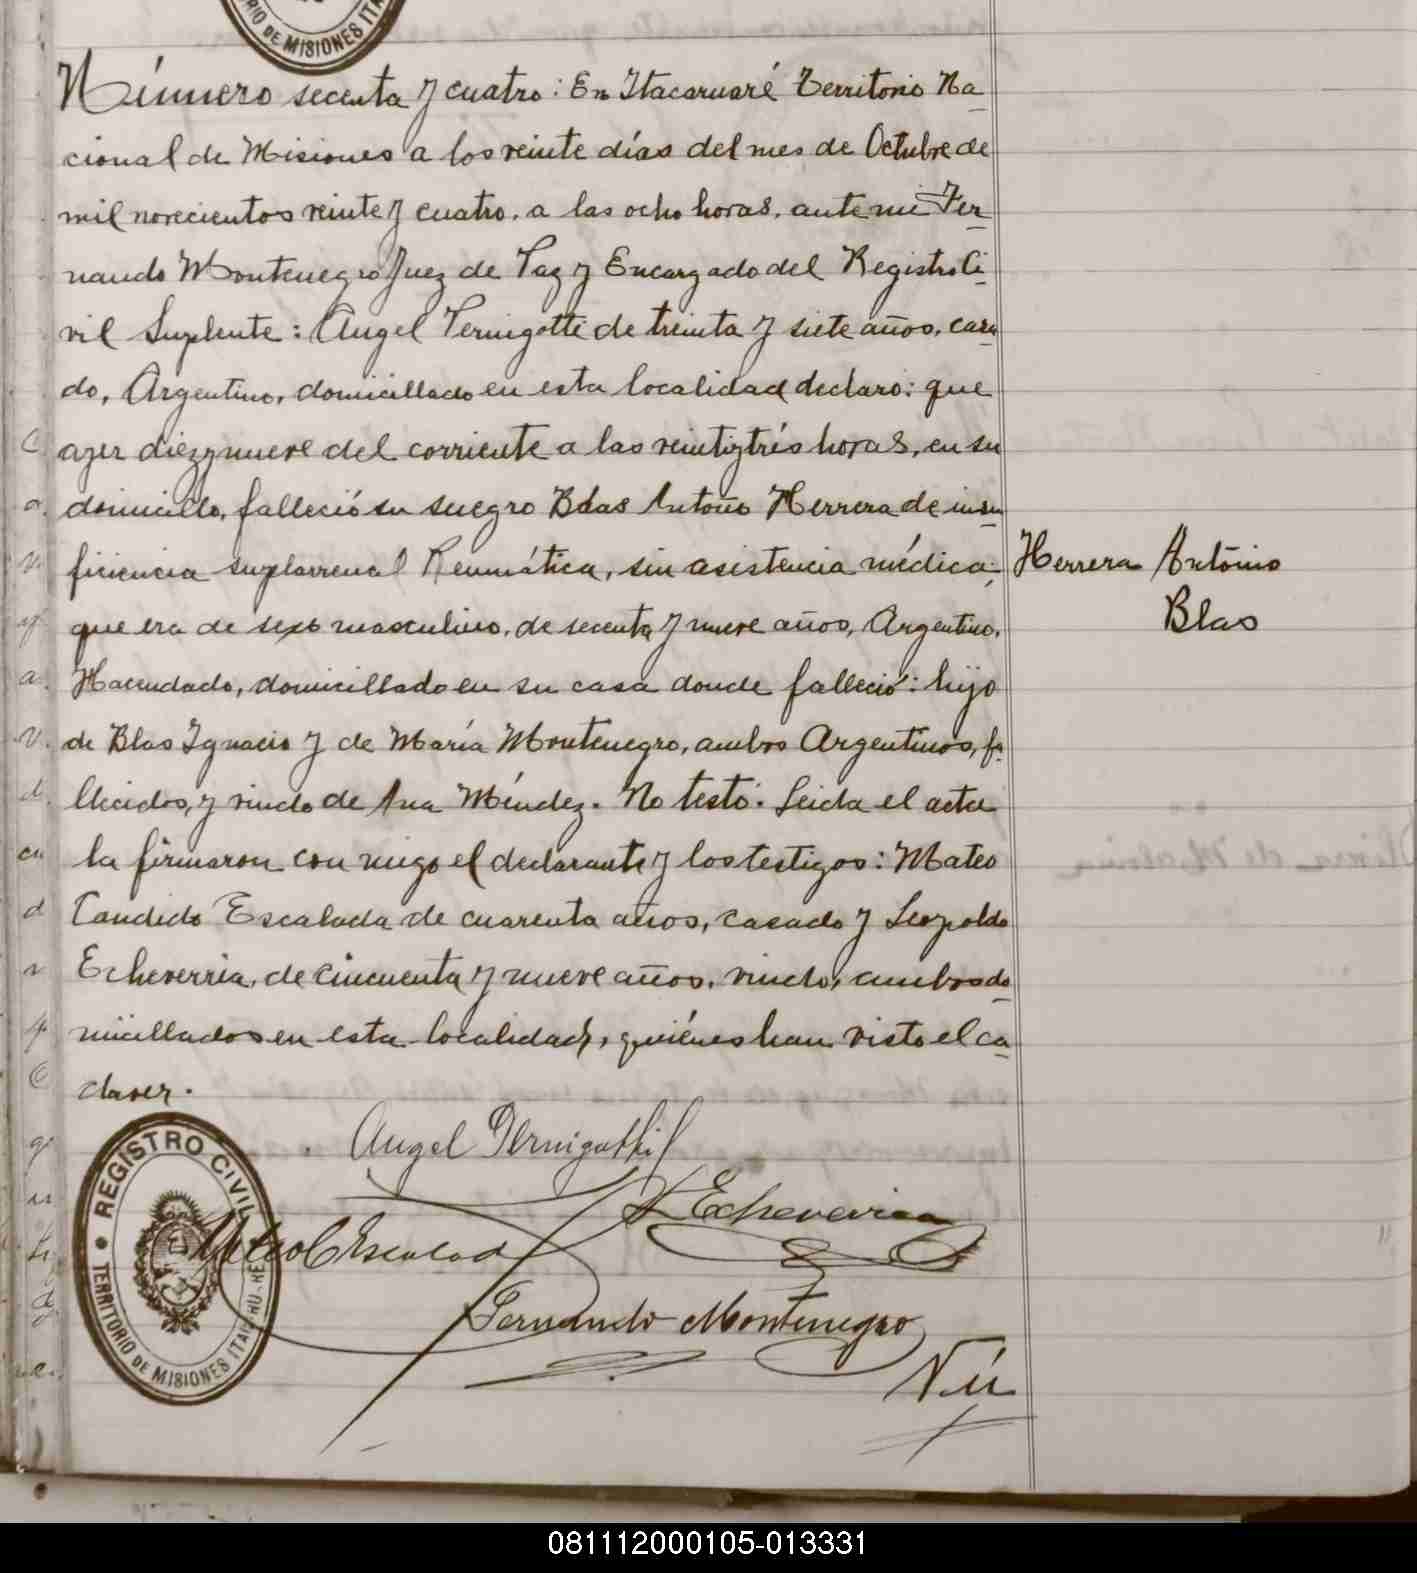 RIO DE MISIONES ITA
Número secenta y cuatro: En Itacaruaré Territorio Na
cional de Misiones a los veinte días del mes de Octubre de
mil novecientos veinte y cuatro. a las ocho horas. ante mi Fer
nando Montenegro Juez de Paz y Encargado del Registro Ci
vil Suplente: Angel Pernigotti de treinta y siete años, casa
do, Argentino, domicillado en esta localidad declaro: que
ayer diez y nueve del corriente a las veintiytrés horas, en su
domicillo, falleció su suegro Blas Antonio Herrera de insu
ficiencia suplarrenal Reumática, sin asistencia médica;
Herrera Antonio
Blas
que era de sexo masculino, de secenta y nueve años, Argentino,
Hacendado, domicillado en su casa donde falleció: hijo
de Blas Ignacio y de María Montenegro, ambos Argentinos, fa
llecidos, y viudo de Ana Méndez. No testó. Leida el acta
la firmaron con migo el declarante y los testigos: Mateo
Candido Escalada de cuarenta años, casado y Leopoldo
Echeverria, de cincuenta y nueve años, viudo, ambos do
micillados en esta localidad, quiénes han visto el ca
daver.
Angel Pernigotti
L Echeverria
Mateo C Escalad
Fernando Montenegro
Nú
REGISTRO CIVIL
TERRITORIO DE MISIONES ITA
081112000105-013331